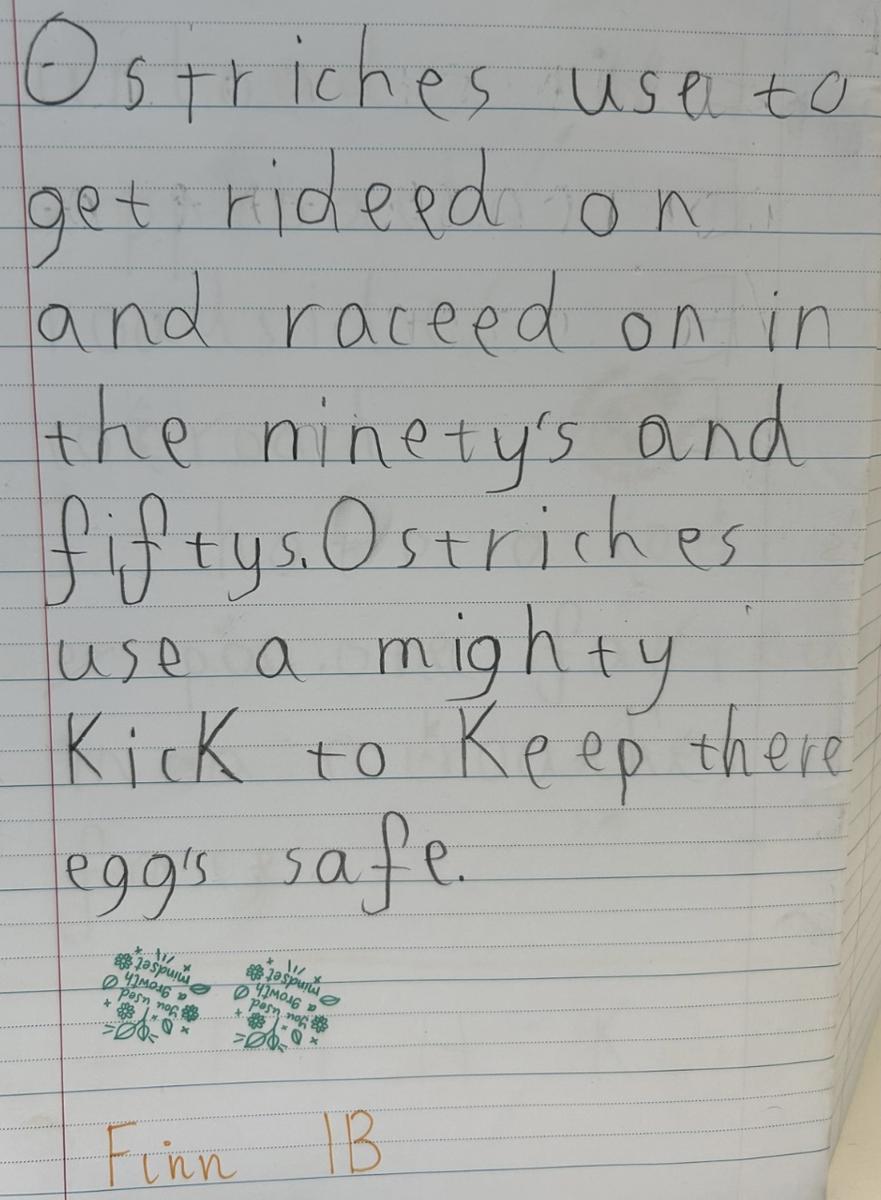 Ostriches use to
get rideed on
and raceed on in
the ninety's and
fiftys. Ostriches
use a mighty
Kick to Keep there
egg's safe.
you used
a growth
mindset
you used
a growth
mindset
Finn 1B